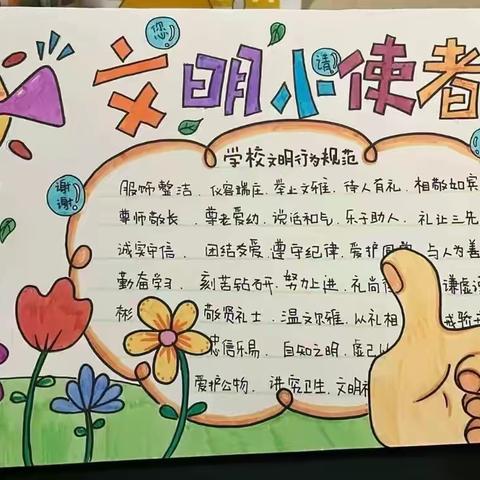 您
请
文明小使者
谢谢
学校文明行为规范
服饰整洁、仪容端庄、举止文雅、待人有礼、相敬如宾
尊师敬长、尊老爱幼、说话和气、乐于助人、礼让三先
诚实守信、团结友爱、遵守纪律、爱护 与人为善
勤奋学习、刻苦钻研、努力上进、礼尚 谦虚
彬 敬贤礼士、温文尔雅、以礼相
忠信乐易、自知之明、虚己
爱护公物、讲究卫生、文明